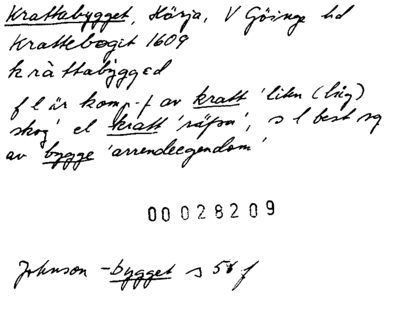 Krattabygget, Hörja, V Göinge hd
Krattebögit 1609
kràttabýgged
f l är komp.-f av kratt 'liten (låg)
skog' el kratt 'räfsa', s l best sg
av bygge 'arrendeegendom'
00028209
Johnson -bygget s 58 f